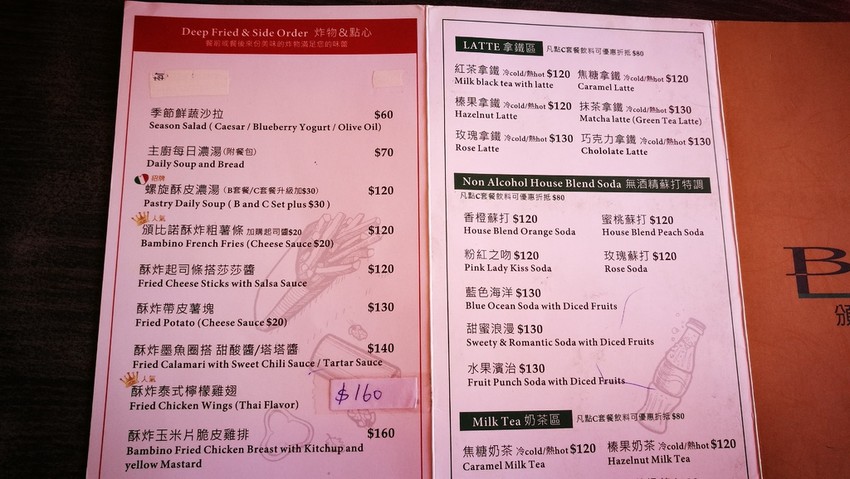 Deep Fried & Side Order 炸物&點心
餐前或餐後來份美味的炸物滿足您的味蕾
季節鮮蔬沙拉 $60
Season Salad ( Caesar / Blueberry Yogurt / Olive Oil)
主廚每日濃湯(附餐包) $70
Daily Soup and Bread
招牌
螺旋酥皮濃湯 (B套餐/C套餐升級加$30) $120
Pastry Daily Soup ( B and C Set plus $30 )
人氣
頒比諾酥炸粗薯條 加購起司醬$20 $120
Bambino French Fries (Cheese Sauce $20)
酥炸起司條搭莎莎醬 $120
Fried Cheese Sticks with Salsa Sauce
酥炸帶皮薯塊 $130
Fried Potato (Cheese Sauce $20)
酥炸墨魚圈搭 甜酸醬/塔塔醬 $140
Fried Calamari with Sweet Chili Sauce / Tartar Sauce
人氣
酥炸泰式檸檬雞翅 $160
Fried Chicken Wings (Thai Flavor)
酥炸玉米片脆皮雞排 $160
Bambino Fried Chicken Breast with Kitchup and
yellow Mastard
LATTE 拿鐵區 凡點C套餐飲料可優惠折抵 $80
紅茶拿鐵 冷cold/熱hot $120 焦糖拿鐵 冷cold/熱hot $120
Milk black tea with latte Caramel Latte
榛果拿鐵 冷cold/熱hot $120 抹茶拿鐵 冷cold/熱hot $130
Hazelnut Latte Matcha latte (Green Tea Latte)
玫瑰拿鐵 冷cold/熱hot $130 巧克力拿鐵 冷cold/熱hot $130
Rose Latte Chololate Latte
Non Alcohol House Blend Soda 無酒精蘇打特調
凡點C套餐飲料可優惠折抵 $80
香橙蘇打 $120 蜜桃蘇打 $120
House Blend Orange Soda House Blend Peach Soda
粉紅之吻 $120 玫瑰蘇打 $120
Pink Lady Kiss Soda Rose Soda
藍色海洋 $130
Blue Ocean Soda with Diced Fruits
甜蜜浪漫 $130
Sweety & Romantic Soda with Diced Fruits
水果濱治 $130
Fruit Punch Soda with Diced Fruits
Milk Tea 奶茶區 凡點C套餐飲料可優惠折抵 $80
焦糖奶茶 冷cold/熱hot $120 榛果奶茶 冷cold/熱hot $120
Caramel Milk Tea Hazelnut Milk Tea
B
頒